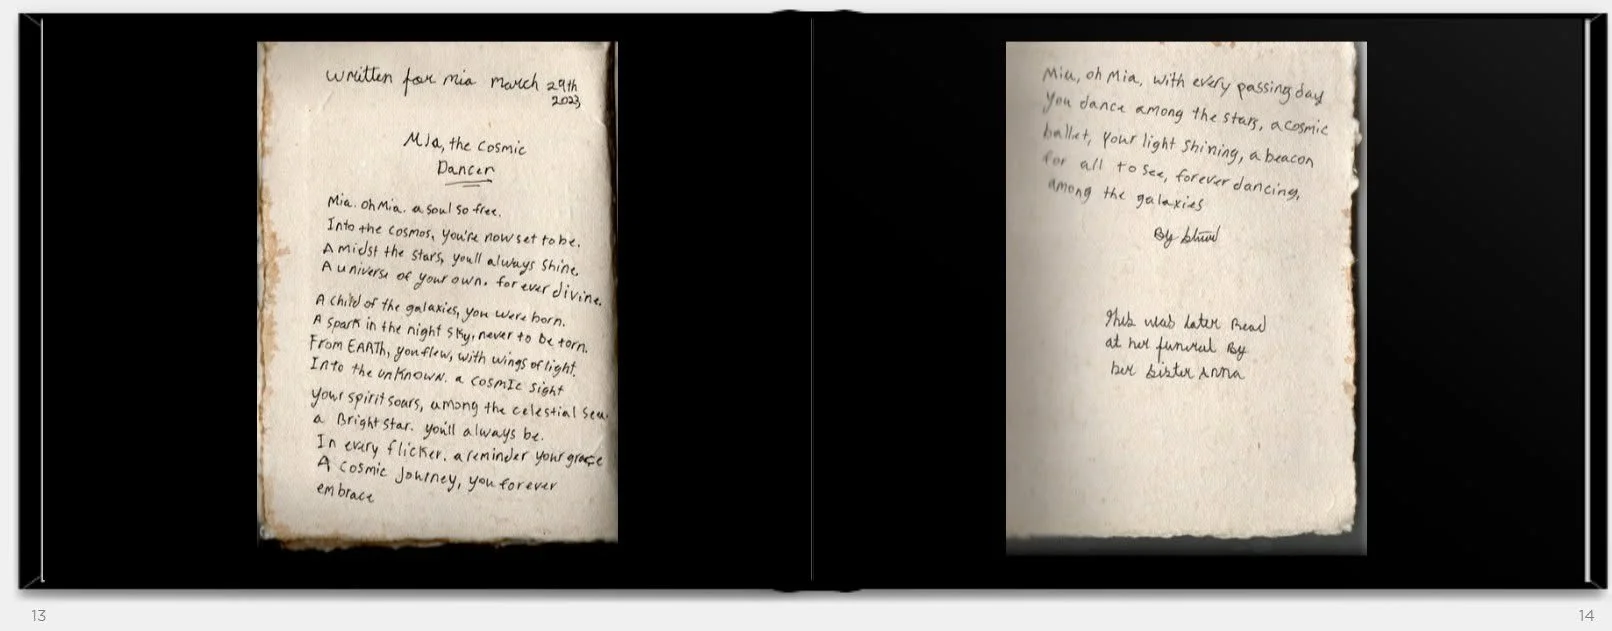 written for mia march 29th
2023
Mia, the cosmic
Dancer
Mia. oh Mia. a soul so free.
Into the cosmos, you're now set to be.
Amidst the stars, you'll always shine.
A universe of your own. forever divine.
A child of the galaxies, you were born.
A spark in the night sky, never to be torn.
From EARTH, you flew, with wings of light.
Into the unknown. a cosmic sight
your spirit soars, among the celestial sea.
a Bright star. you'll always be.
In every flicker. a reminder your grace
A cosmic Journey, you forever
embrace
Mia, oh Mia, with every passing day
You dance among the stars, a cosmic
ballet, your light shining, a beacon
for all to see, forever dancing,
among the galaxies
By
this was later Read
at her funeral By
her sister Anna
13
14